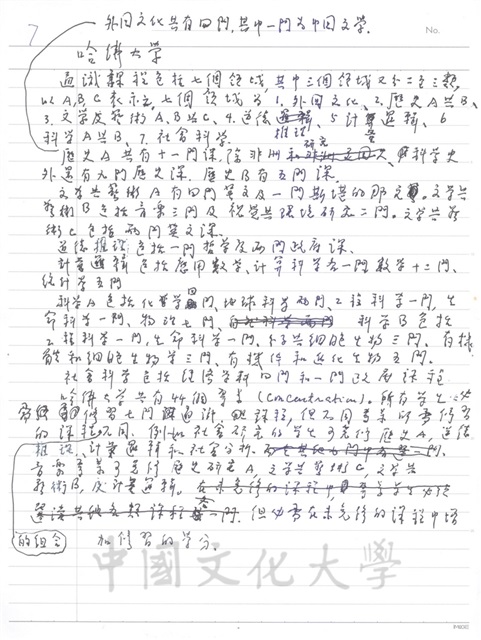 7
外国文化共有四門,其中一門為中国文学.
No.
哈佛大学
通識課程包括七個領域,其中三個領域又分二至三類,
以A,B,C表示之,七個領域為 1.外国文化、2.歷史A與B、
3.文学及藝術A,B與C、4.道德推理、5計量邏輯、6
科学A與B、7.社会科学.
歷史A共有十一門課,除非洲和科学史
外還有九門歷史課.歷史B有五門課.
文学與藝術A有四門英文及一門斯堪的那文.文学與
藝術B包括音楽三門及視覺與環境研究二門.文学與藝
術C包括兩門英文課.
道德推理包括一門哲学及兩門政府課.
計量邏輯包括應用数学、計算科学各一門数学十二門、
統計学五門
科学A包括化学四門、地球科学兩門、工程科学一門,生
命科学一門、物理七門、科学B包括
工程科学一門,生命科学一門、分子與細胞生物三門、有
和細胞生物学三門、有機件和進化生物五門.
社会科学包括經濟学科四門和一門政府課程
哈佛大学共有44個專業(Concentration).所有学生必
需修習七門通識課程,但不同專業所需修習
的課程不同.例如社会研究的学生可免修歷史A,道德
推理、計量邏輯和社会分析.
音楽專業可免修歷史研究A,文学與藝術C,文学與
藝術B,及計量邏輯.在未免修的課程中
一門.但必需在未免修的課程中
的组合 和修習的学分.
中國文化大學